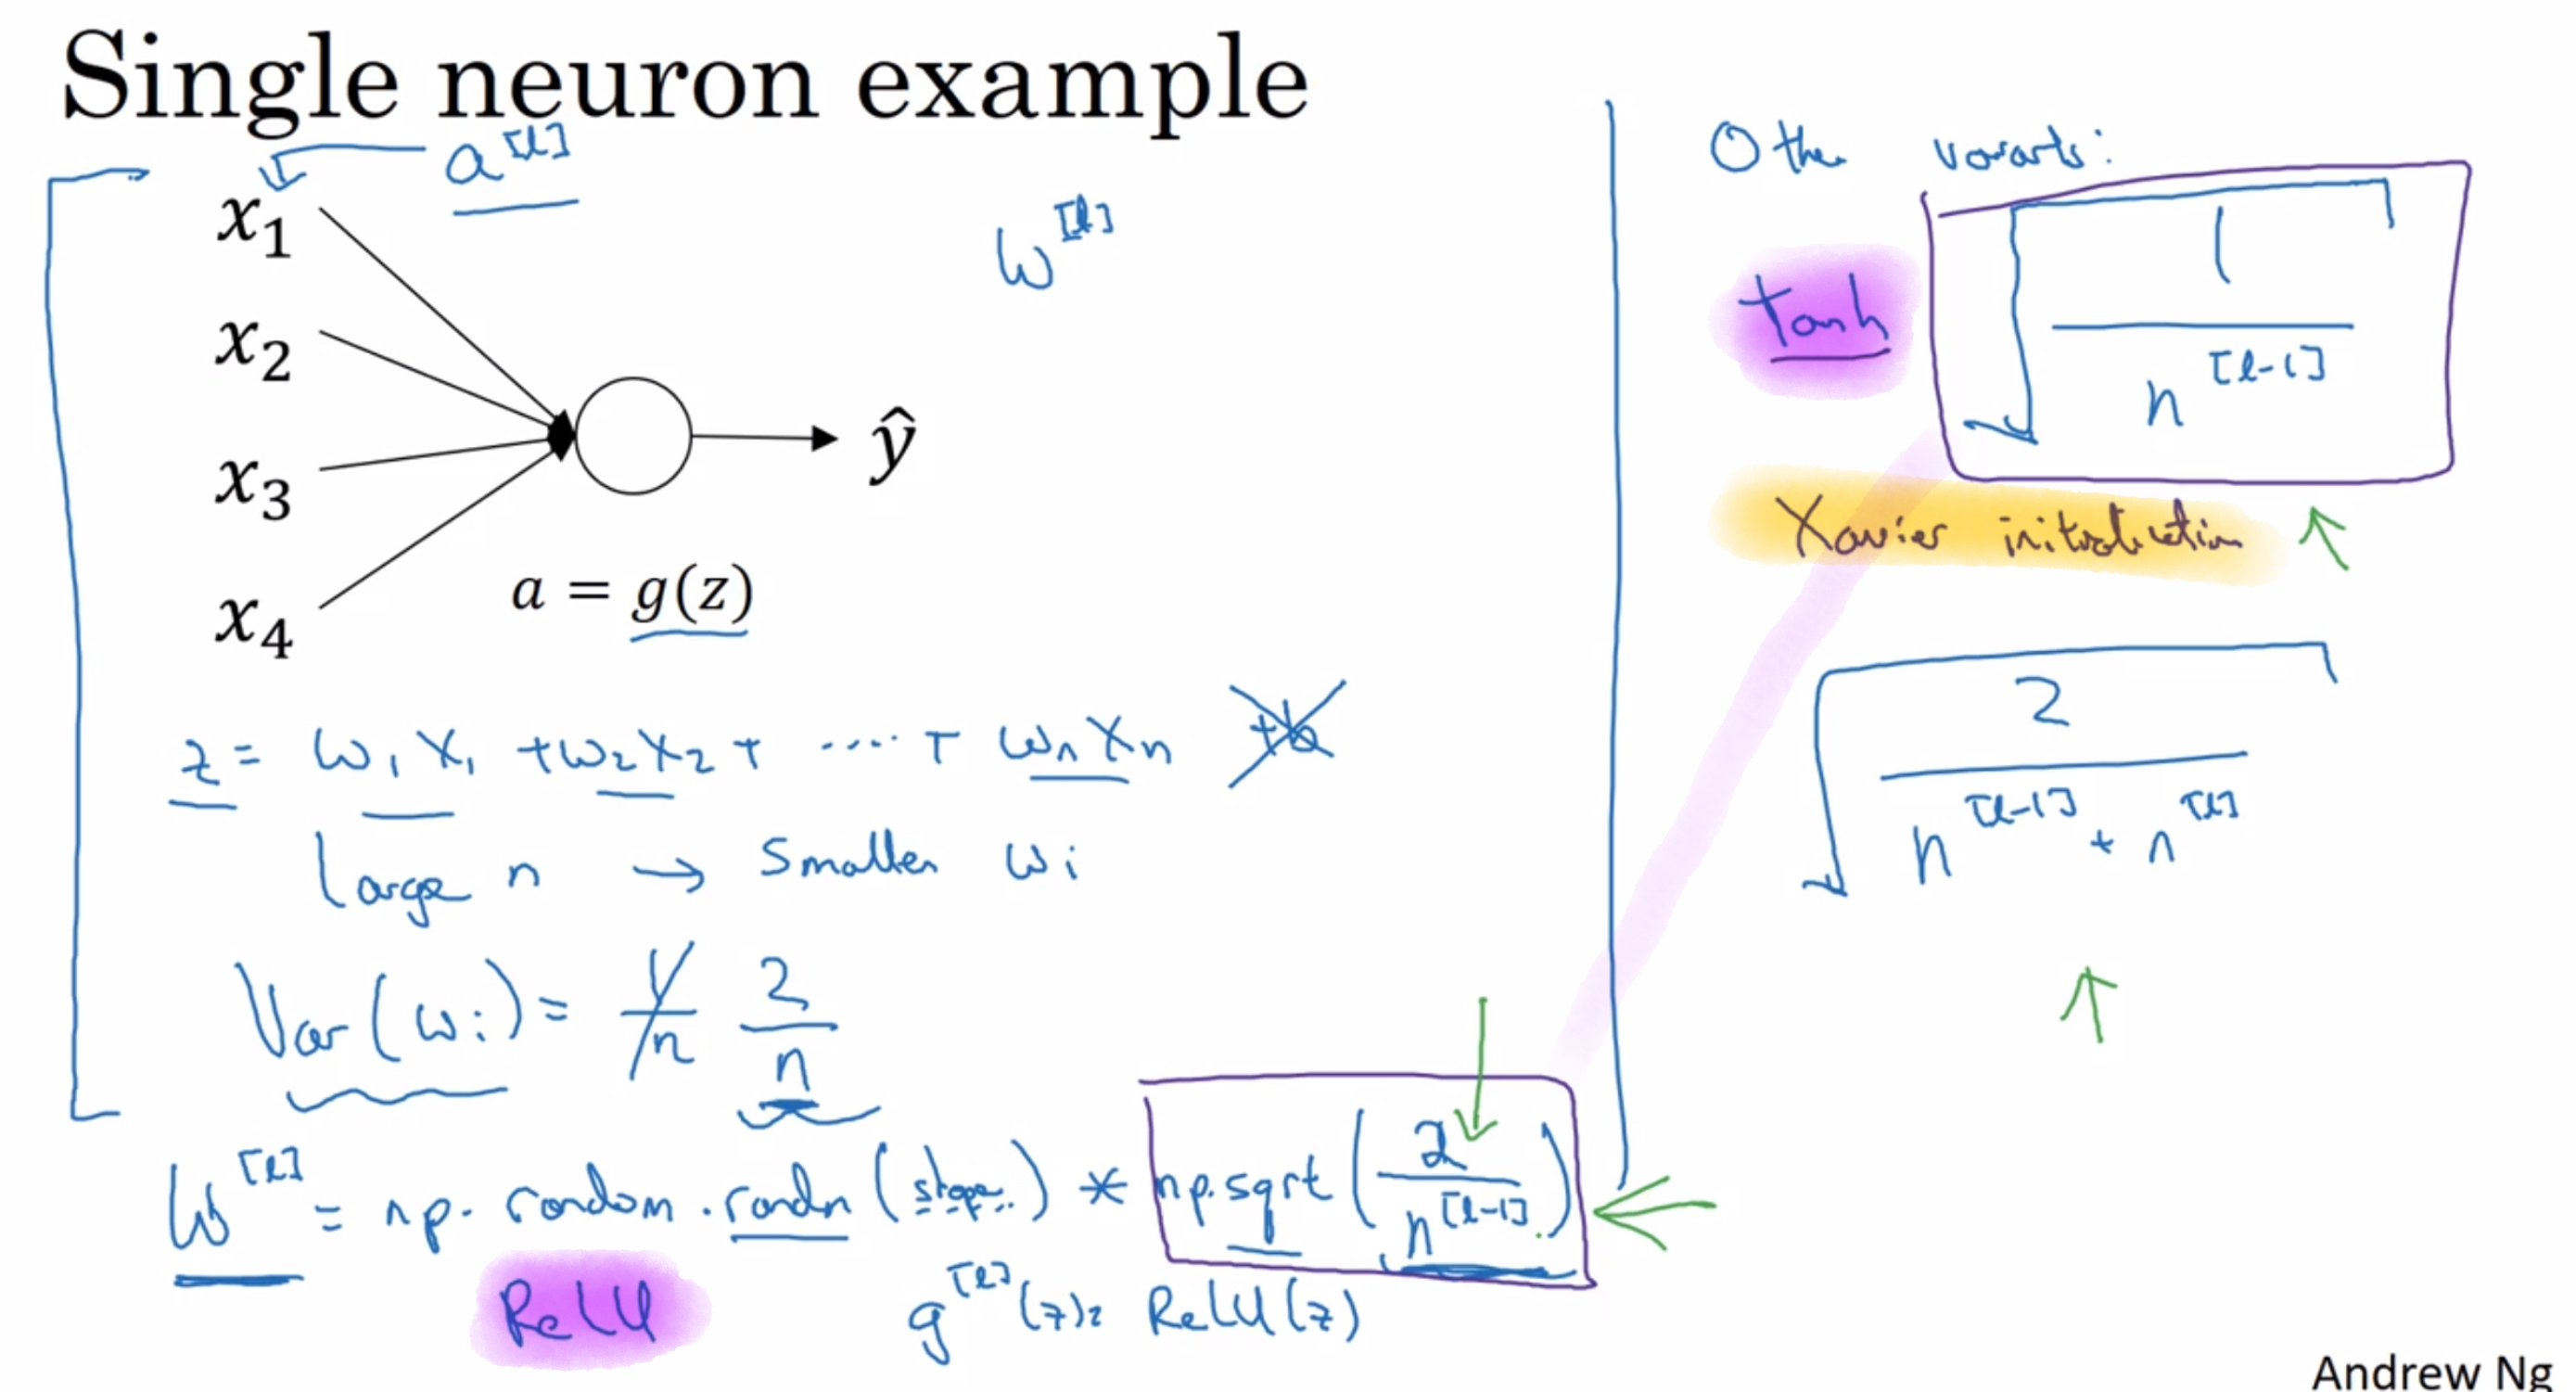 Single neuron example
a^[l]
x₁
x₂
x₃
x₄
ŷ
a = g(z)
W^[l]
z = w₁x₁ + w₂x₂ + ···· + wₙxₙ +b
Large n → Smaller wᵢ
Var(wᵢ) = 1/n 2/n
W^[l] = np.random.randn(shape) * np.sqrt(2/n^[l-1])
ReLU g^[l](z) = ReLU(z)
Other variants:
tanh √(1/n^[l-1])
Xavier initialization
√(2/(n^[l-1] + n^[l]))
Andrew Ng